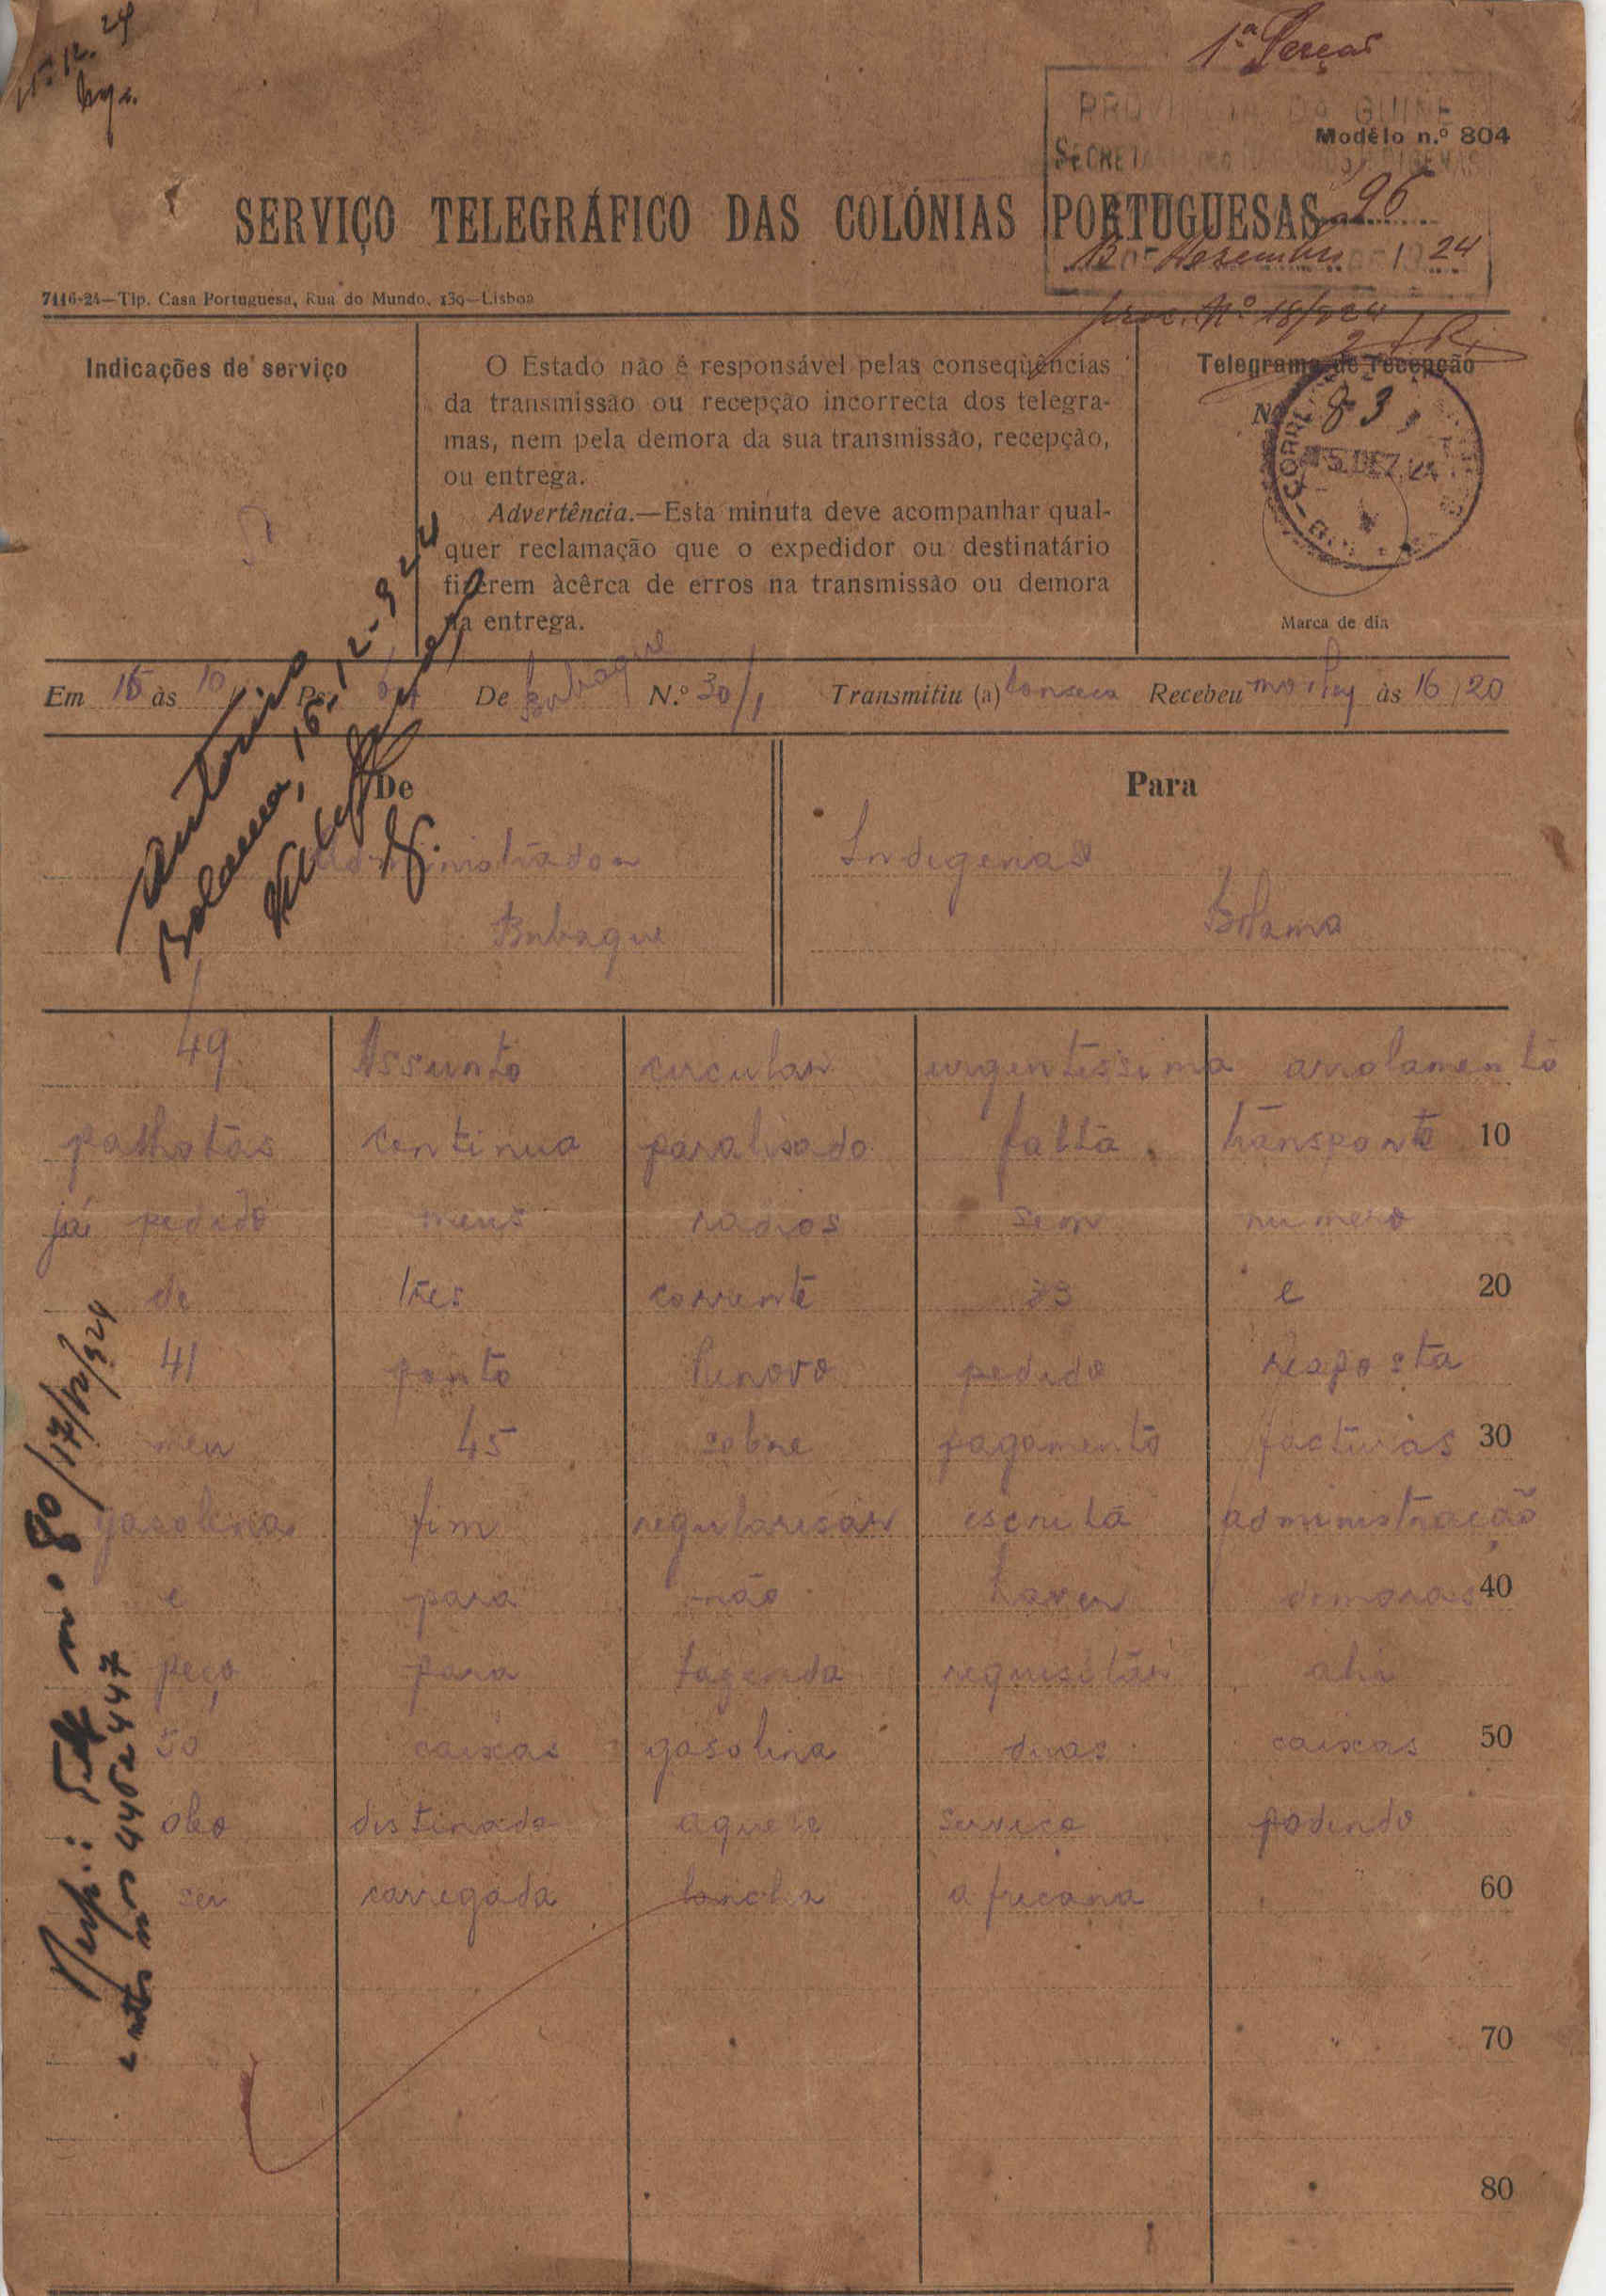 15-12-24
1.ª Secção
PROVINCIA DA GUINÉ
Modêlo n.º 804
SECRETARIA DOS NEGOCIOS INDIGENAS
96
SERVIÇO TELEGRÁFICO DAS COLÓNIAS PORTUGUESAS
Desembro 1924
7116-24—Tip. Casa Portuguesa, Rua do Mundo, 139—Lisboa
proc. Nº 18/924
Indicações de serviço
O Estado não é responsável pelas conseqùências
da transmissão ou recepção incorrecta dos telegra-
mas, nem pela demora da sua transmissão, recepção,
ou entrega.
Advertência.—Esta minuta deve acompanhar qual-
quer reclamação que o expedidor ou destinatário
fizerem àcêrca de erros na transmissão ou demora
na entrega.
Telegrama de recepção
N.º 83
CORREIO
15 DEZ 24
Marca de dia
Em 15 às 10 Ps. De Bubaque N.º 30/1 Transmitiu (a) Fonseca Recebeu às 16/20
De
Administrador
Bubaque
Para
Indigenas
Bolama
Bolama, 16-12-924
49 Assunto circular urgentissima arrolamento
palhotas continua paralisado falta transporte 10
já pedido meus radios sem numero
de tres corrente 33 e 20
41 ponto Renovo pedido resposta
meu 45 sobre pagamento facturas 30
gasolina fim regularisar escrita administração
e para não haver demoras 40
peço para fazenda requisitar ahi
50 caixas gasolina duas caixas 50
oleo distinado aquele serviço podendo
ser carregada lancha africana 60
70
80
n.º 80/17/12/924
e notas nos 446 e 447